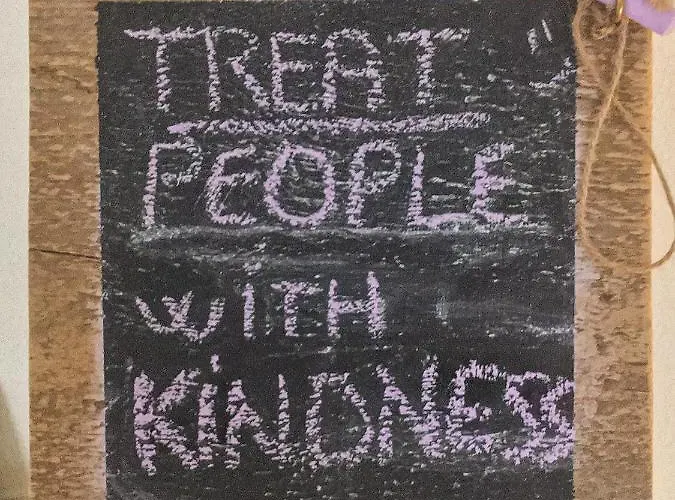 TREAT
PEOPLE
WiTH
KiNDNESS